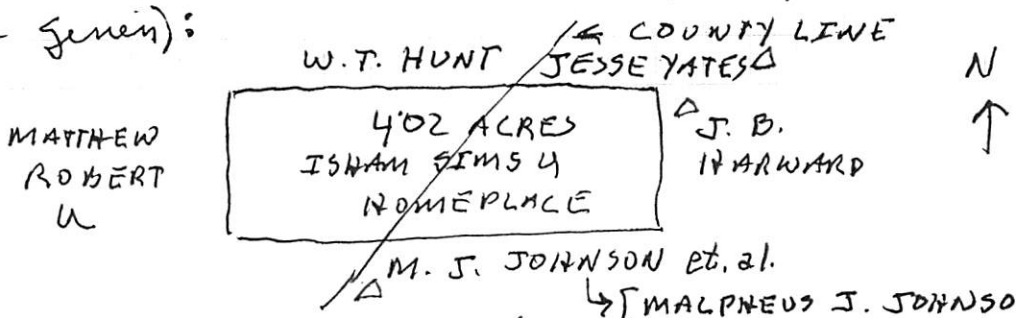 - Genein):
← COUNTY LINE
W.T. HUNT JESSE YATES△
N
↑
MATTHEW
ROBERT
U
402 ACRES
ISHAM SIMS U
HOMEPLACE
△ J. B.
HARWARD
△ M. J. JOHNSON et. al.
↳ [MALPHEUS J. JOHNSO